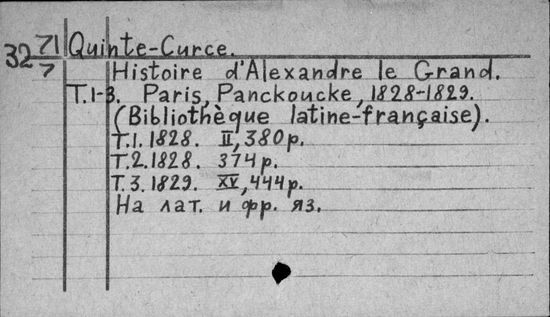 32 71/7 Quinte-Curce.
Histoire d'Alexandre le Grand.
T.1-3. Paris, Panckoucke, 1828-1829.
(Bibliothèque latine-française).
T.1. 1828. II, 380 p.
T.2. 1828. 374 p.
T.3. 1829. XV, 444 p.
На лат. и фр. яз.